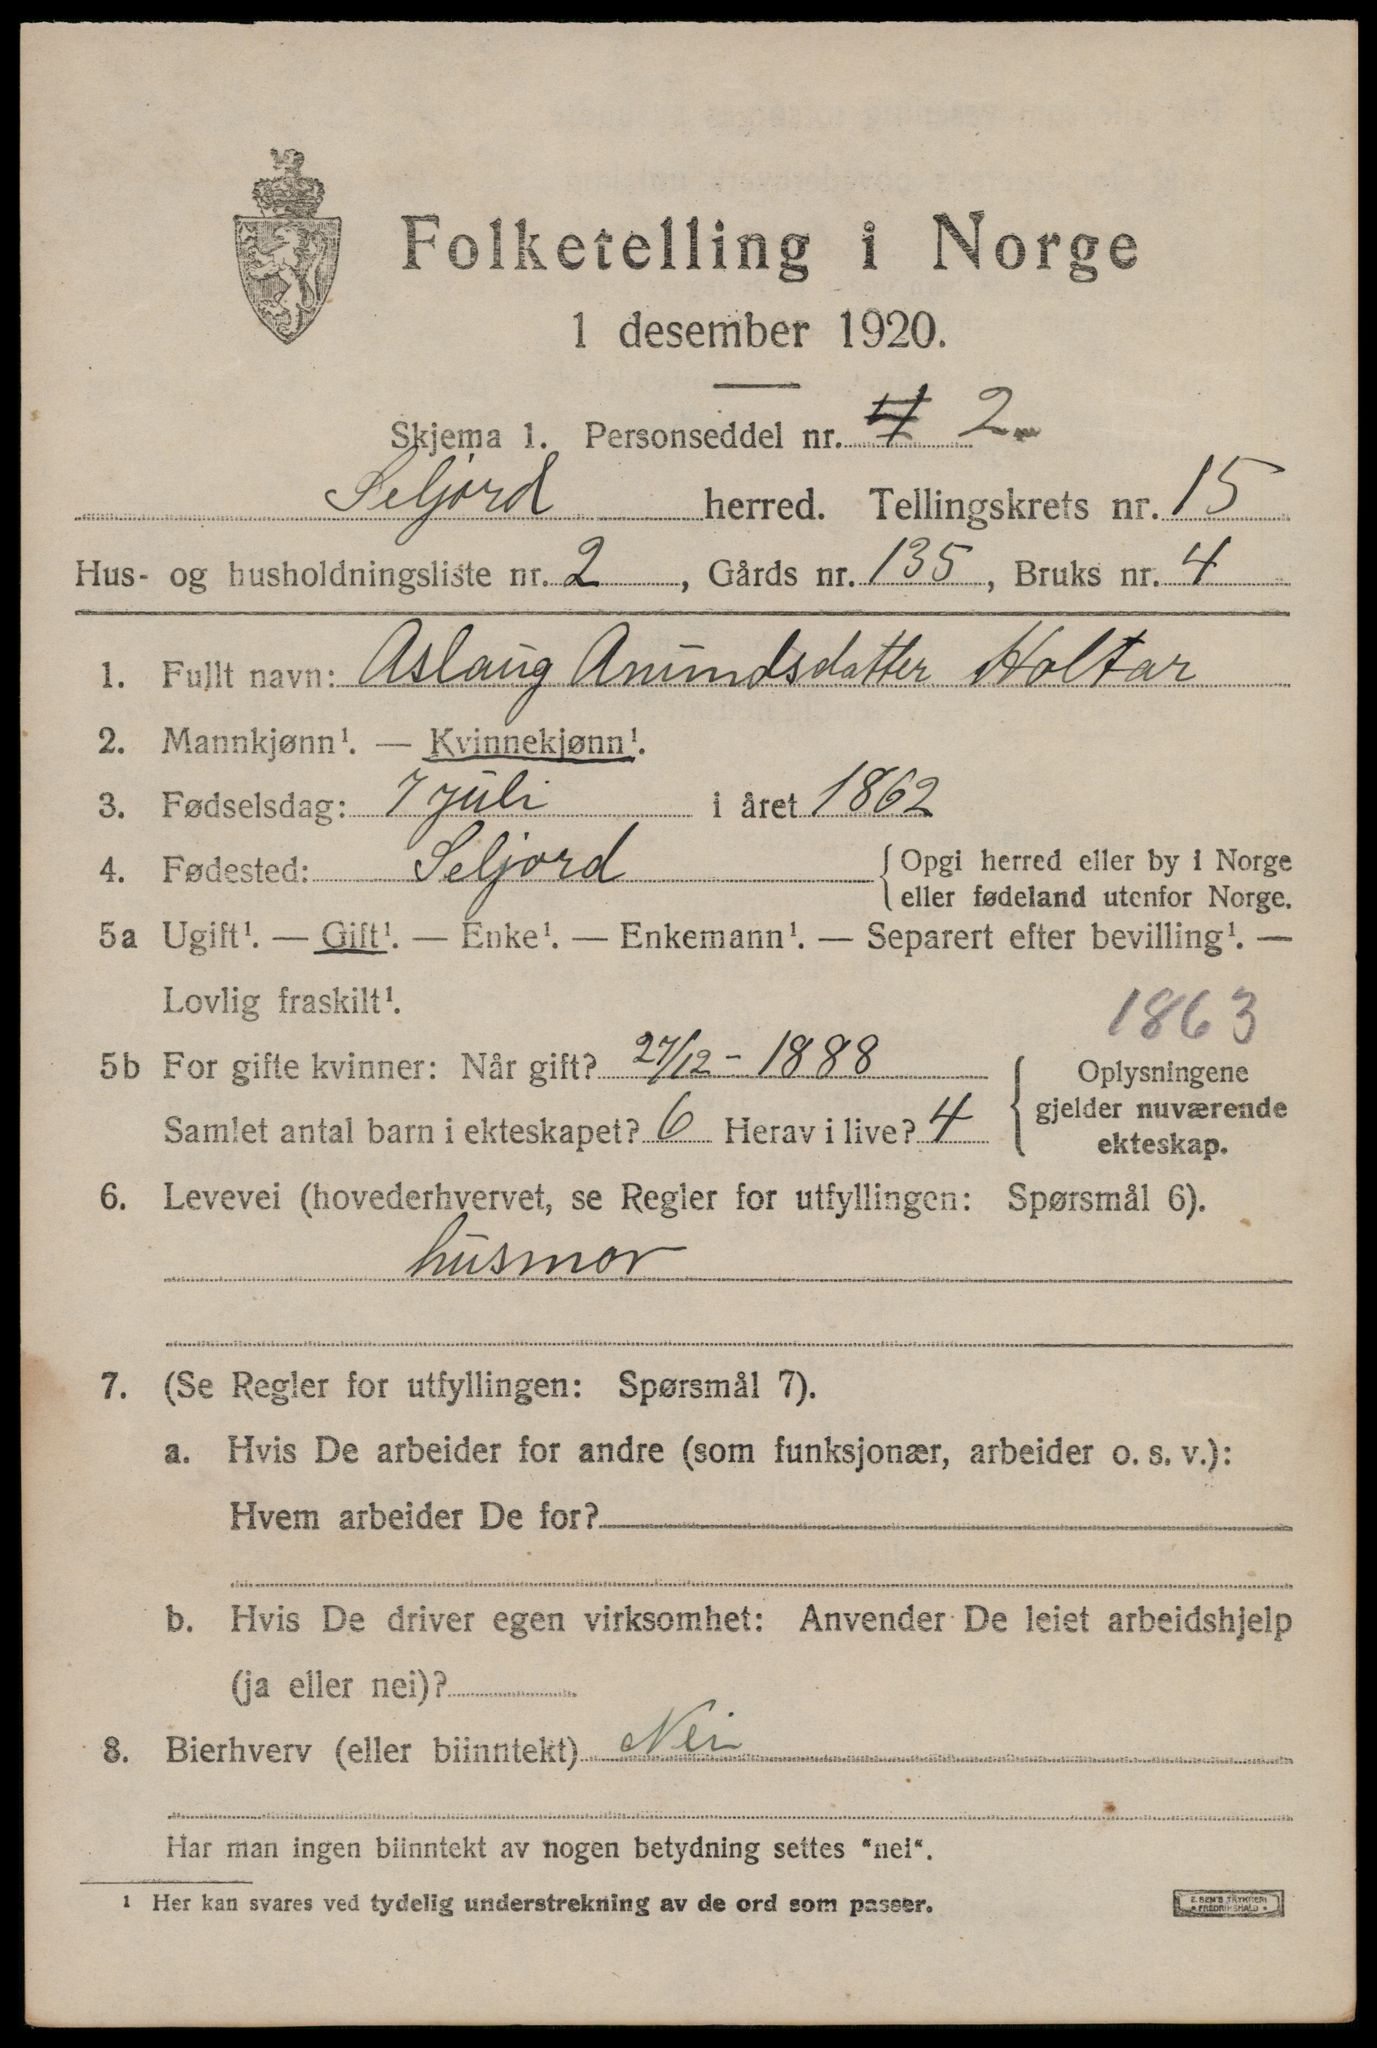 Folketelling i Norge
1 desember 1920.
Skjema 1. Personseddel nr. 4 2
Seljord herred. Tellingskrets nr. 15
Hus- og husholdningsliste nr. 2, Gårds nr. 135, Bruks nr. 4
1. Fullt navn: Aslaug Anundsdatter Holtar
2. Mannkjønn¹. — Kvinnekjønn¹.
3. Fødselsdag: 7 juli i året 1862
4. Fødested: Seljord { Opgi herred eller by i Norge
eller fødeland utenfor Norge.
5a Ugift¹. — Gift¹. — Enke¹. — Enkemann¹. — Separert efter bevilling¹. —
Lovlig fraskilt¹.
1863
5b For gifte kvinner: Når gift? 27/12 - 1888
Samlet antal barn i ekteskapet? 6 Herav i live? 4
Oplysningene
gjelder nuværende
ekteskap.
6. Levevei (hovederhvervet, se Regler for utfyllingen: Spørsmål 6).
husmor
7. (Se Regler for utfyllingen: Spørsmål 7).
a. Hvis De arbeider for andre (som funksjonær, arbeider o. s. v.):
Hvem arbeider De for?
b. Hvis De driver egen virksomhet: Anvender De leiet arbeidshjelp
(ja eller nei)?
8. Bierhverv (eller biinntekt) Nei
Har man ingen biinntekt av nogen betydning settes "nei".
¹ Her kan svares ved tydelig understrekning av de ord som passer.
E. SEM'S TRYKKERI
FREDRIKSHALD